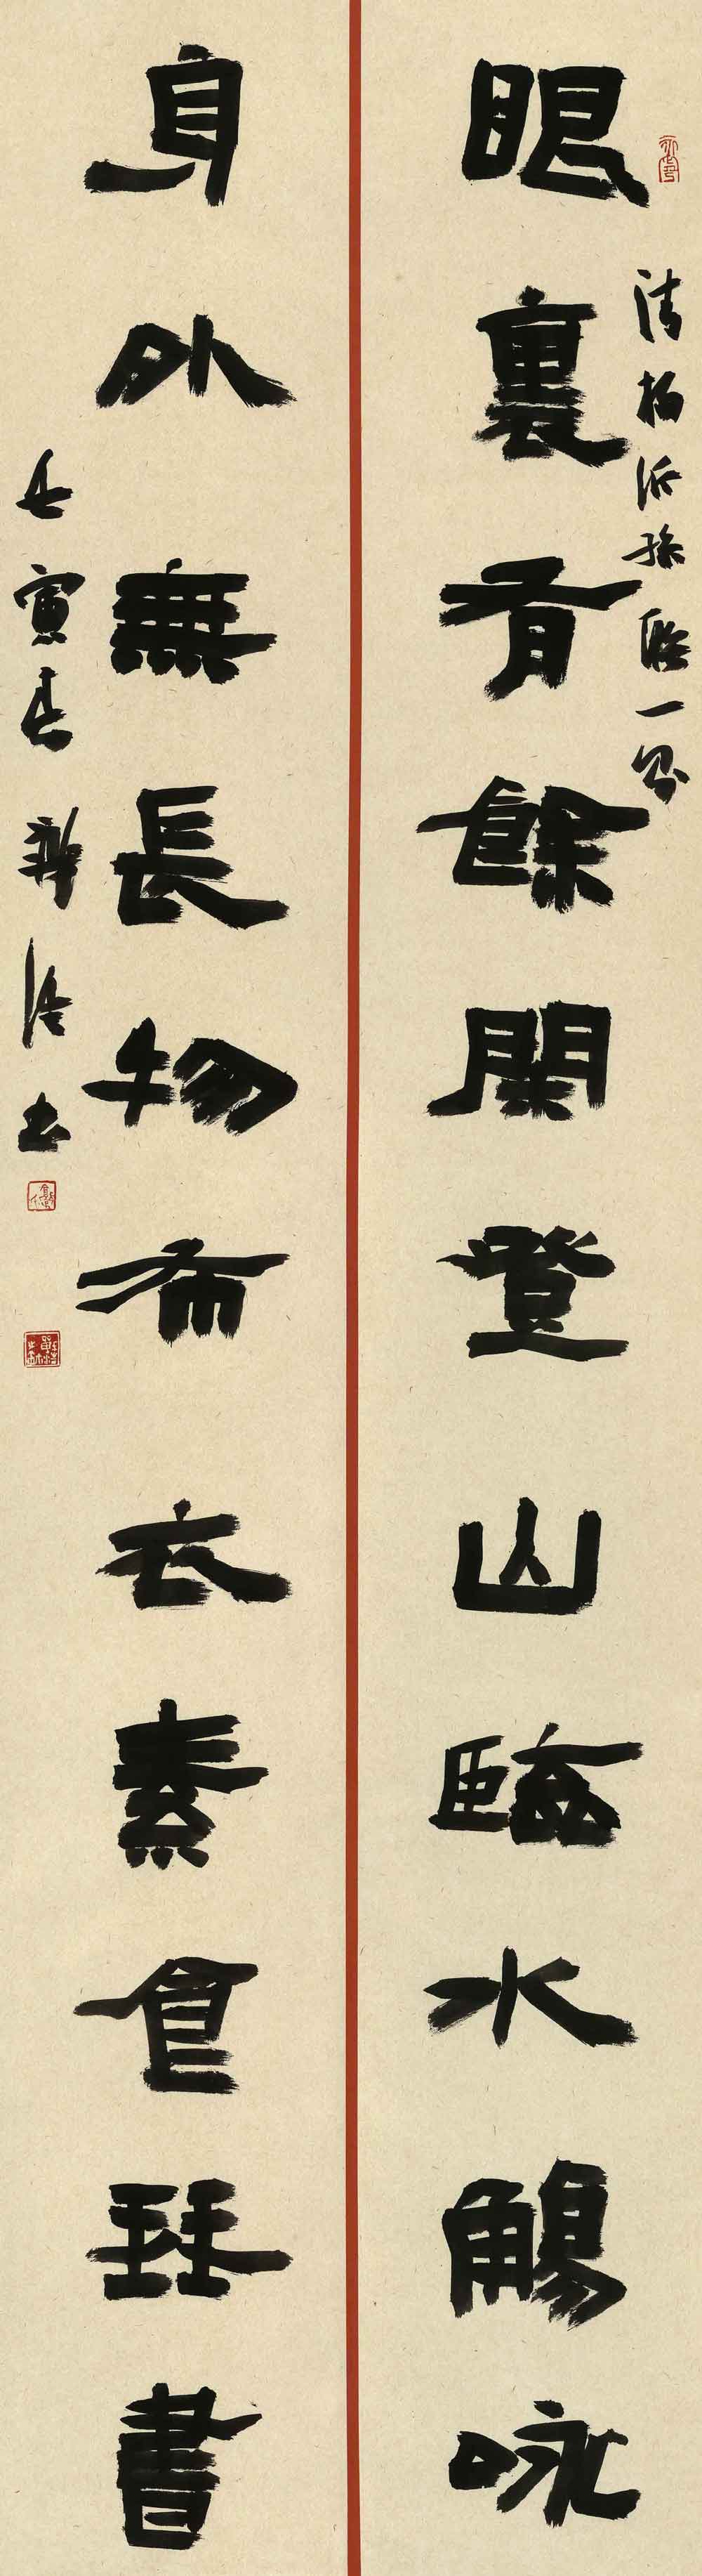 眼裏有餘閑登山臨水觴咏
清楊沂孫聯一對
身外無長物布衣素食琴書
壬寅春